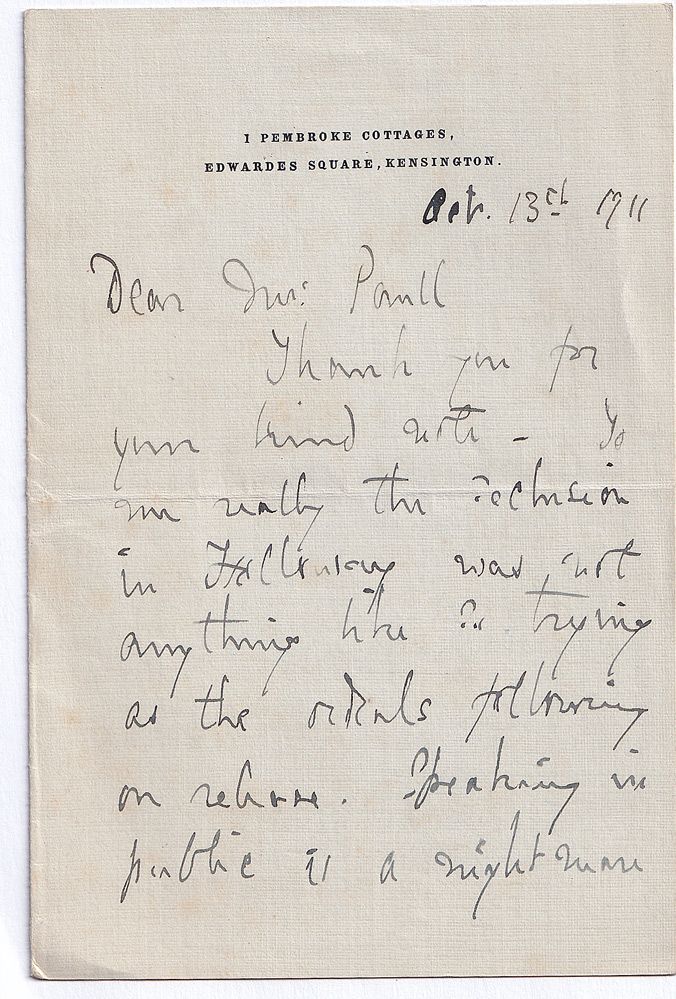 1 PEMBROKE COTTAGES,
EDWARDES SQUARE, KENSINGTON.
Oct. 13th 1911
Dear Mrs: Powell
Thank you for
your kind note - To
me really the seclusion
in Holloway was not
anything like so trying
as the ordeals following
on release. Speaking in
public is a nightmare